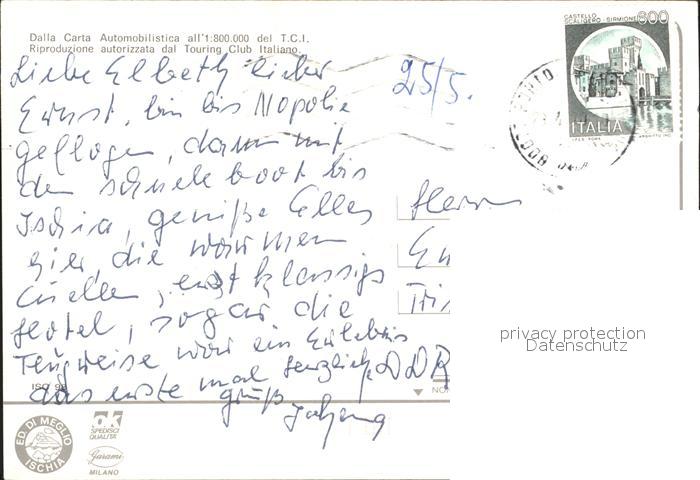 Dalla Carta Automobilistica all'1:800.000 del T.C.I.
Riproduzione autorizzata dal Touring Club Italiano.
CASTELLO
SCALIGERO - SIRMIONE
600
ITALIA
25/5.
Liebe Elbeth lieber
Ernst, bin bis Nopolie
geflogen, dann mit
den schnele boot bis
Ischia, genieße Alles
hier, die warmen
Quellen, erstklassigs
Hotel, sogar die
Flugreise war ein Erlebnis
das erste mal herzlich
grüß
Herrn
DDR
ED. DI MEGLIO
ISCHIA
ok
SPEDISCI
QUALITÀ
Garami
MILANO
privacy protection
Datenschutz